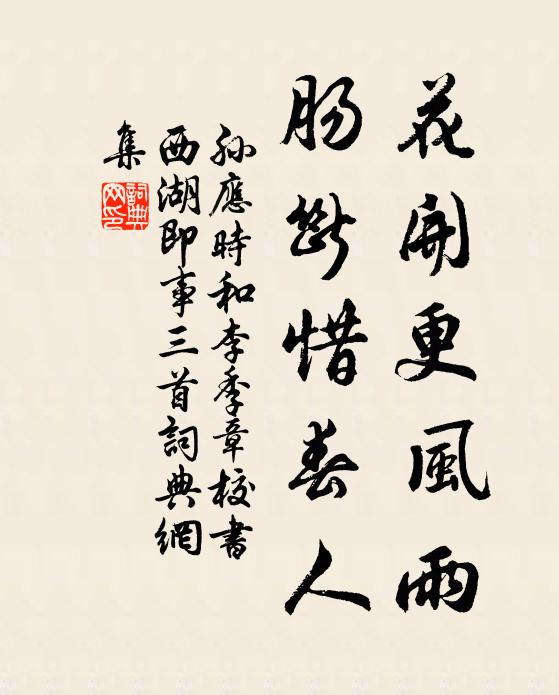 花開更風雨
腸斷惜春人
孫應時和李季章校書
西湖即事三首詞典網
集
詞典
网印